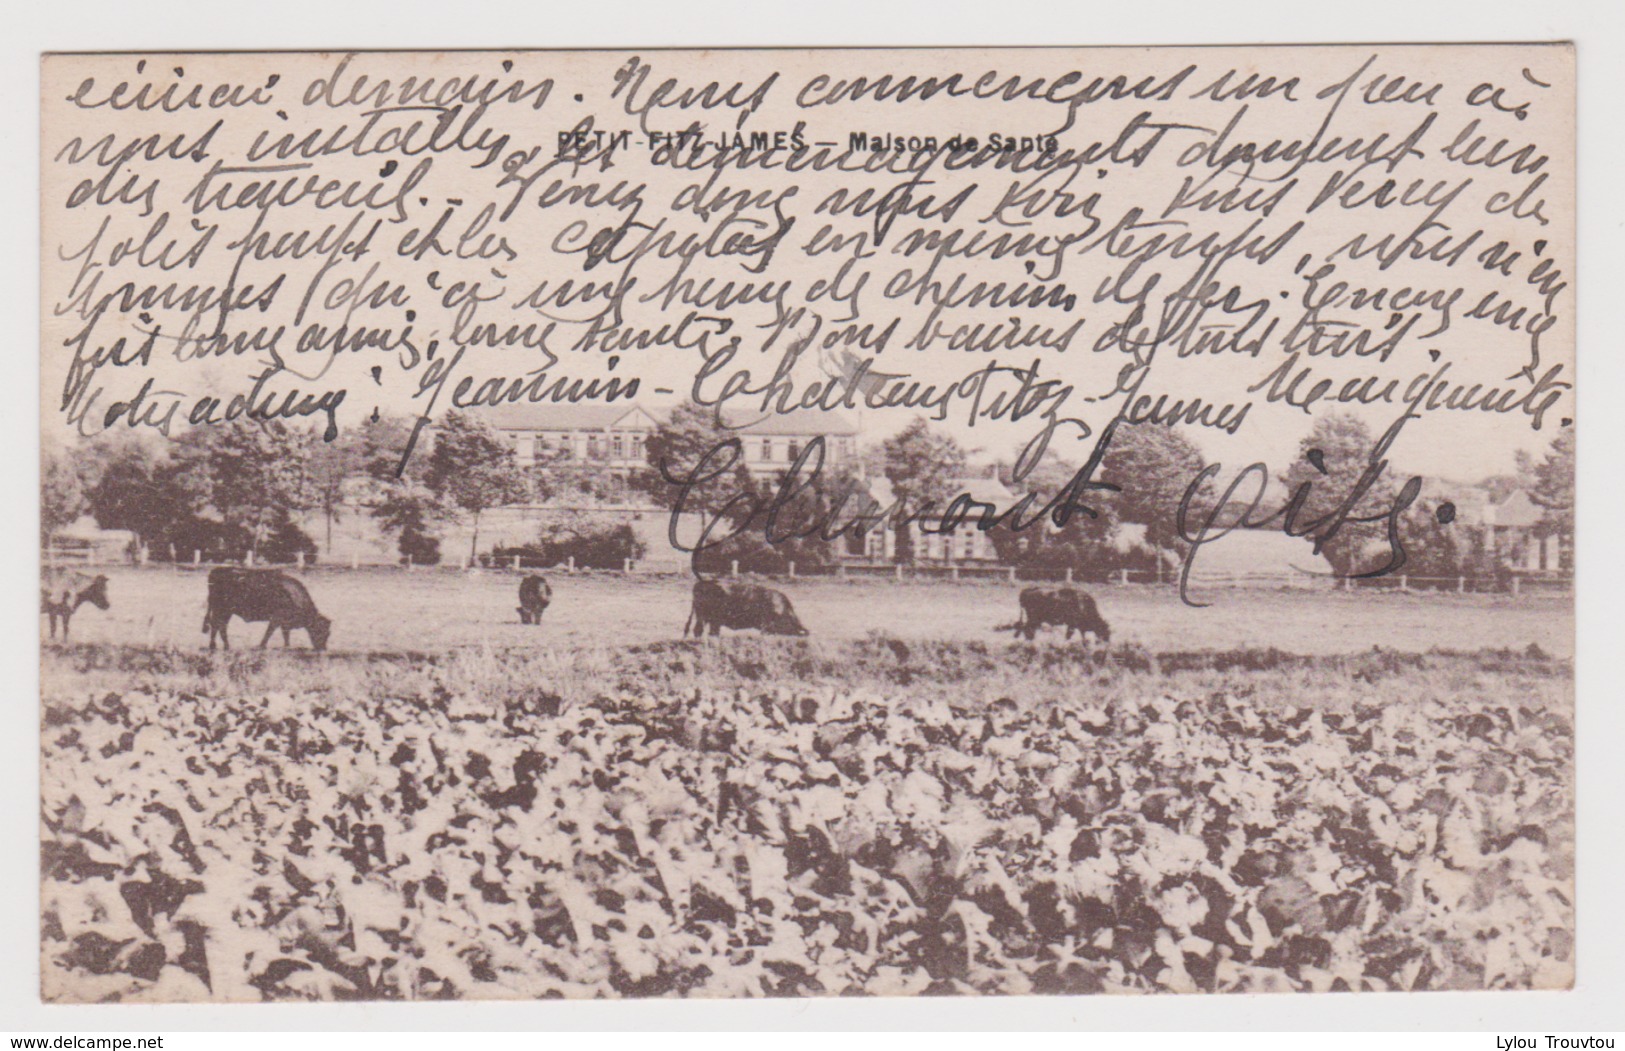 écrirai demain. Nous commençons un peu à
nous installer, les déménagements donnent bien
PETIT-FITZ-JAMES — Maison de Santé
du travail. — Venez donc nous voir, vous verrez de
jolis pays et les en même temps, nous n'en
sommes qu'à une heure de chemin de fer. Encore une
fois bonne année, bonne santé. Bons baisers de tous trois.
Notre adresse : Jeannin - Château Fitz-James Marguerite.
Clermont Oise.
www.delcampe.net
Lylou Trouvtou